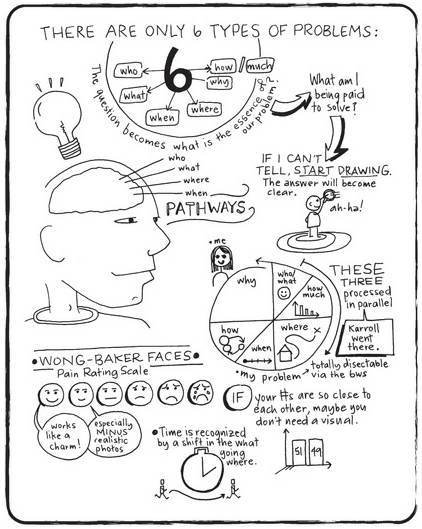 THERE ARE ONLY 6 TYPES OF PROBLEMS:
6
who
what
when
where
why
how / much
The question becomes what is the essence of our problem?
What am I
being paid
to solve?
IF I CAN'T
TELL, START DRAWING.
The answer will become
clear.
ah-ha!
who
what
where
when
PATHWAYS
•me
why
who/
what
how
much
where
when
how
•my problem → totally disectable
via the bws
THESE
THREE
processed
in parallel
Karroll
went
there.
•WONG-BAKER FACES•
Pain Rating Scale
works
like a
charm!
especially
MINUS
realistic
photos
IF your #s are so close to
each other, maybe you
don't need a visual.
51 49
•Time is recognized
by a shift in the what
going
where.